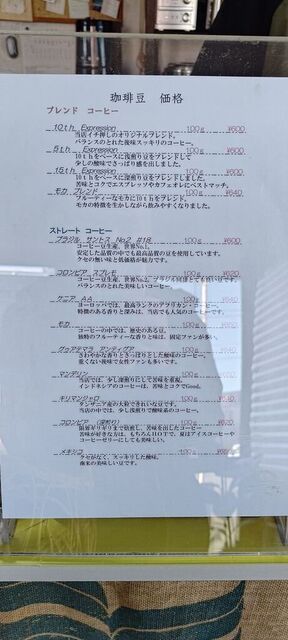 珈琲豆 価格
ブレンド コーヒー
10th Expression 100g ¥600
当店イチ押しのオリジナルブレンド。
バランスのとれた後味スッキリのコーヒー。
5th Expression 100g ¥600
10thをベースに浅煎り豆をブレンドして
少しの酸味でさっぱり感を出しました。
15th Expression 100g ¥600
10thをベースに深煎り豆をブレンドしました。
苦味とコクでエスプレッソやカフェオレにベストマッチ。
モカ ブレンド 100g ¥640
フルーティーなモカに10thをブレンド。
モカの特徴を生かしながら飲みやすくなりました。
ストレート コーヒー
ブラジル サントス No2 #18 100g ¥600
コーヒー豆生産、世界No1。
安定した品質の中でも最高品質の豆を使用しています。
クセの無い味と低価格が魅力です。
コロンビア スプレモ 100g
コーヒー豆生産、世界No2。ブラジル同様とても良い豆です。
バランスのとれた美味しいコーヒー。
ケニア AA 100g
ヨーロッパでは、最高ランクのアフリカン・コーヒー。
特徴のある香りと深みは、当店でも人気のコーヒーです。
モカ 100g
コーヒーの中では、歴史のある豆。
独特のフルーティーな香りと味は、固定ファンが多い。
グァテマラ アンティグア 100g
さわやかな香りときりっとした酸味のコーヒー。
重くない後味で女性ファンも多いです。
マンデリン 100g
当店では、少し深煎りにして苦味を重視。
インドネシアのコーヒーは、苦味とコクでGood。
キリマンジャロ 100g
タンザニア産の大粒できれいな豆です。
当店の中では、少し浅煎りで酸味系のコーヒー。
コロンビア (深煎り) 100g
限界ギリギリまで焙煎し、苦味を出したコーヒー
苦味が好きな方は、もちろんHOTで、夏はアイスコーヒーや
コーヒーゼリーにしても美味しい。
メキシコ 100g
クセがなく、スッキリした酸味。
南米の美味しい豆です。